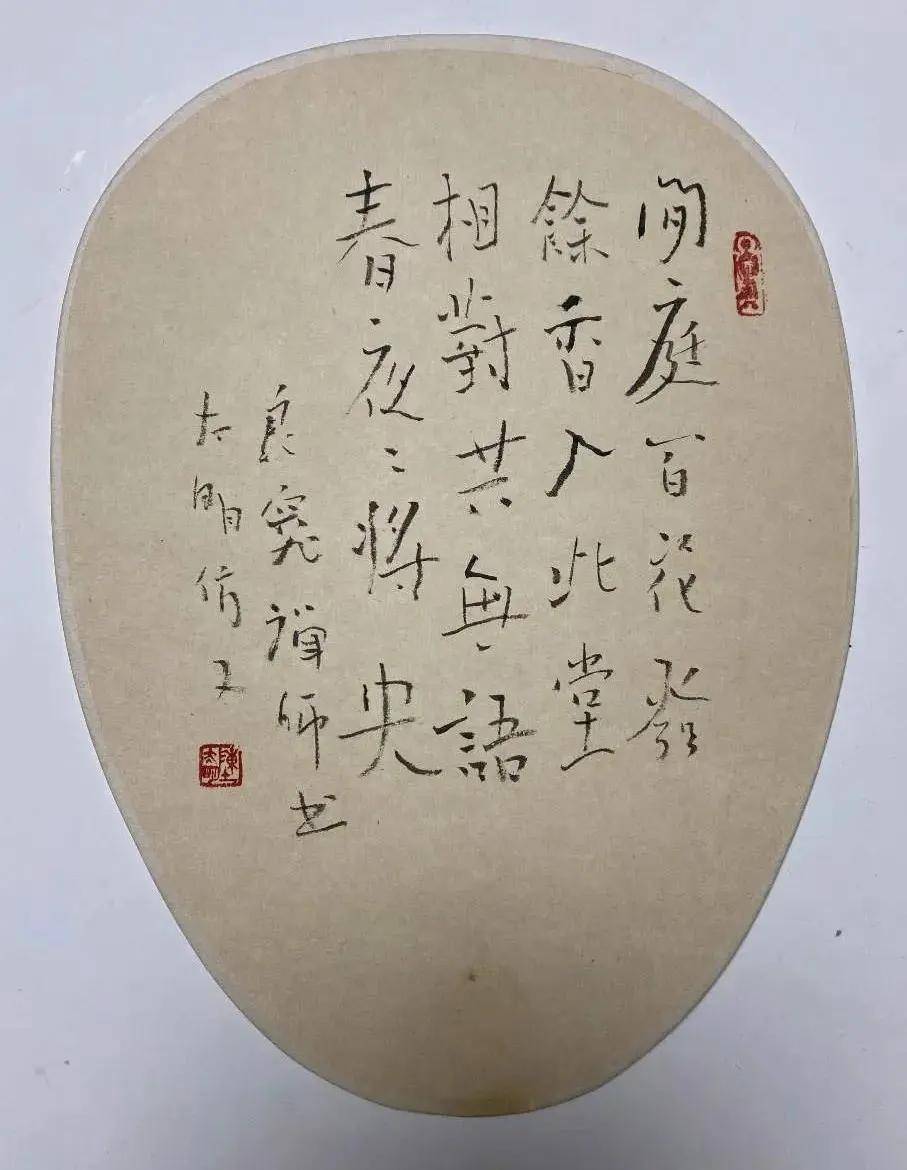 閒庭百花發
餘香入此堂
相對共無語
春夜〻將央
良寬禅師书
太明仿之